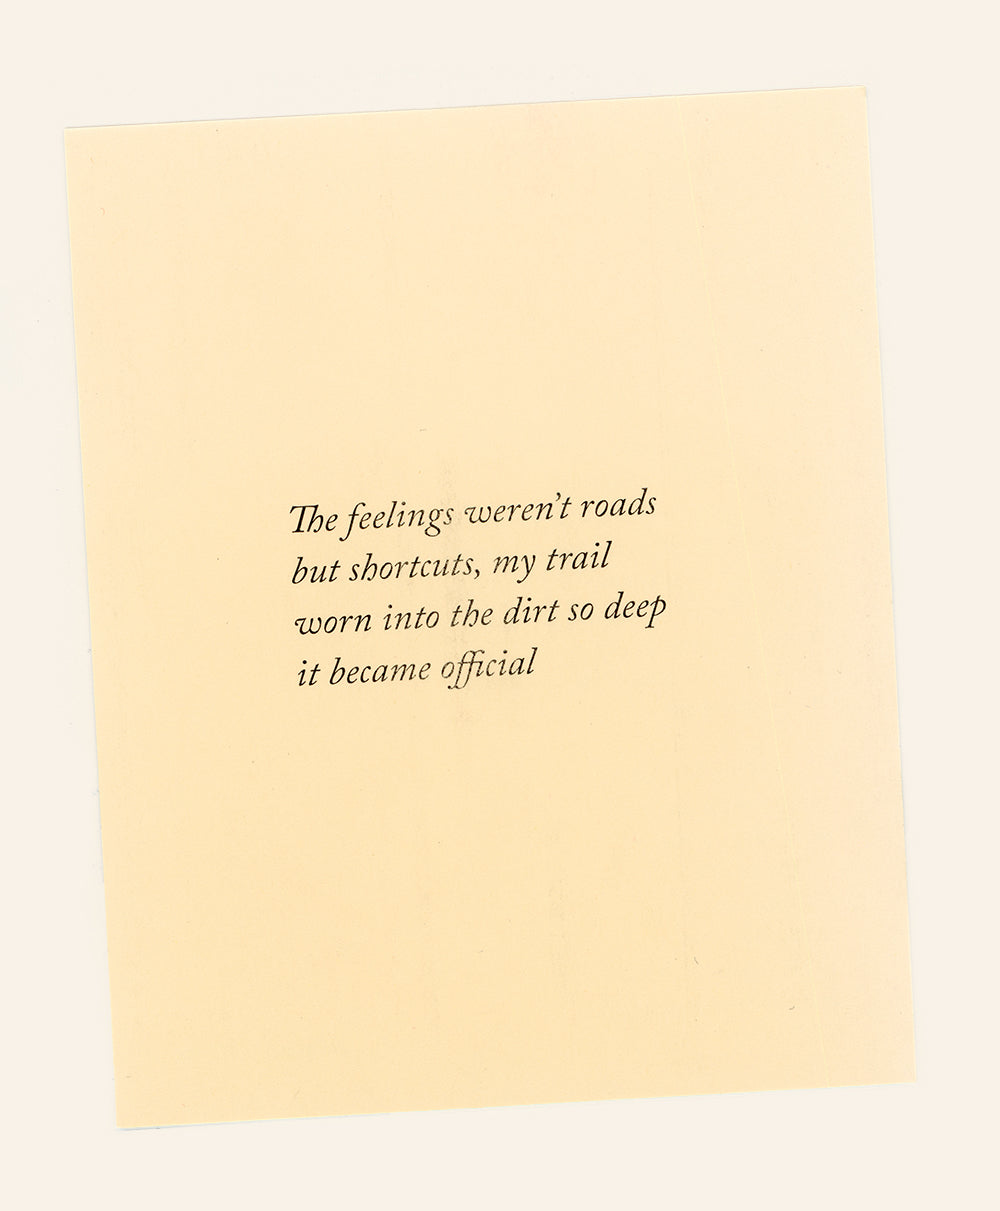 The feelings weren’t roads
but shortcuts, my trail
worn into the dirt so deep
it became official